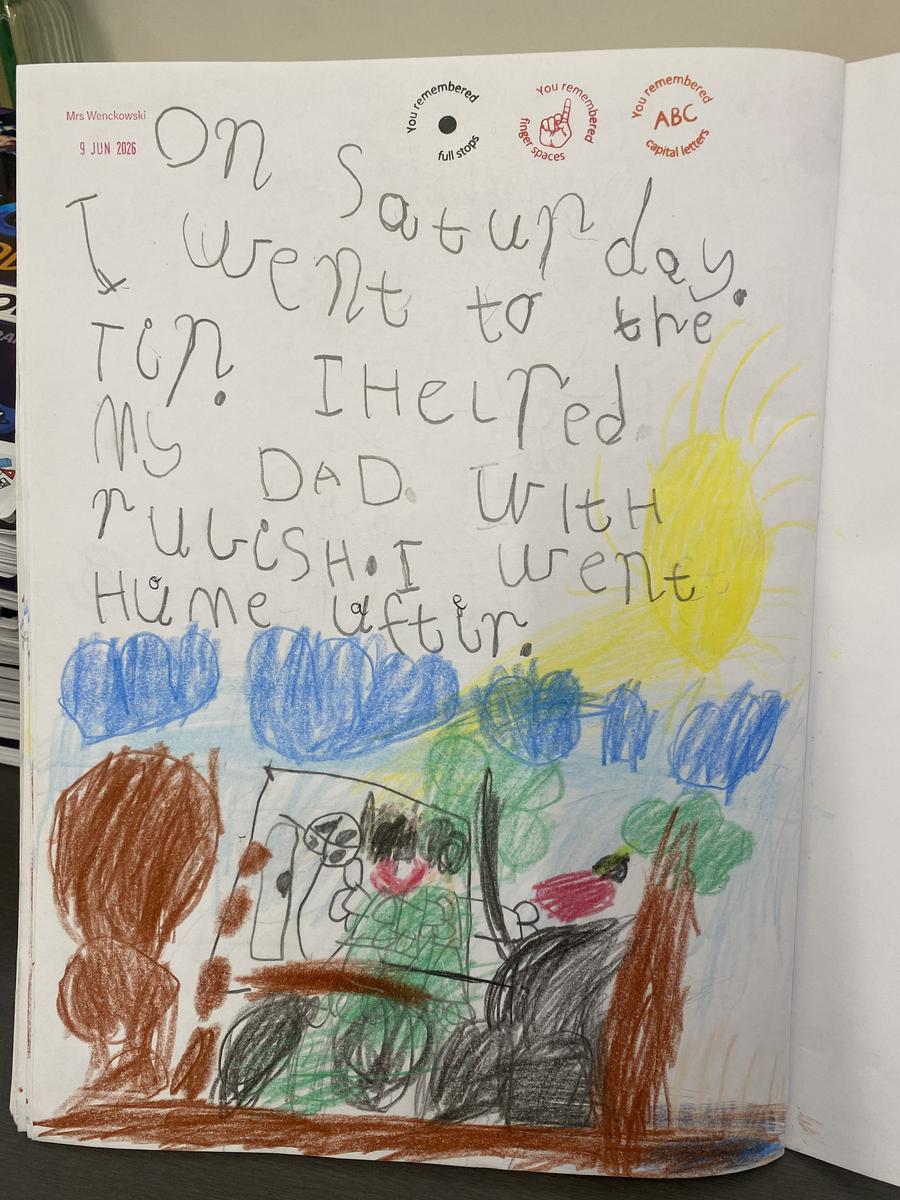 Mrs Wenckowski
9 JUN 2026
You remembered full stops
You remembered finger spaces
You remembered ABC capital letters
On Saturday.
I went to the
Tip. I HeLped
My DAD. WItH
ruBiSH. I went
Hume aftir.